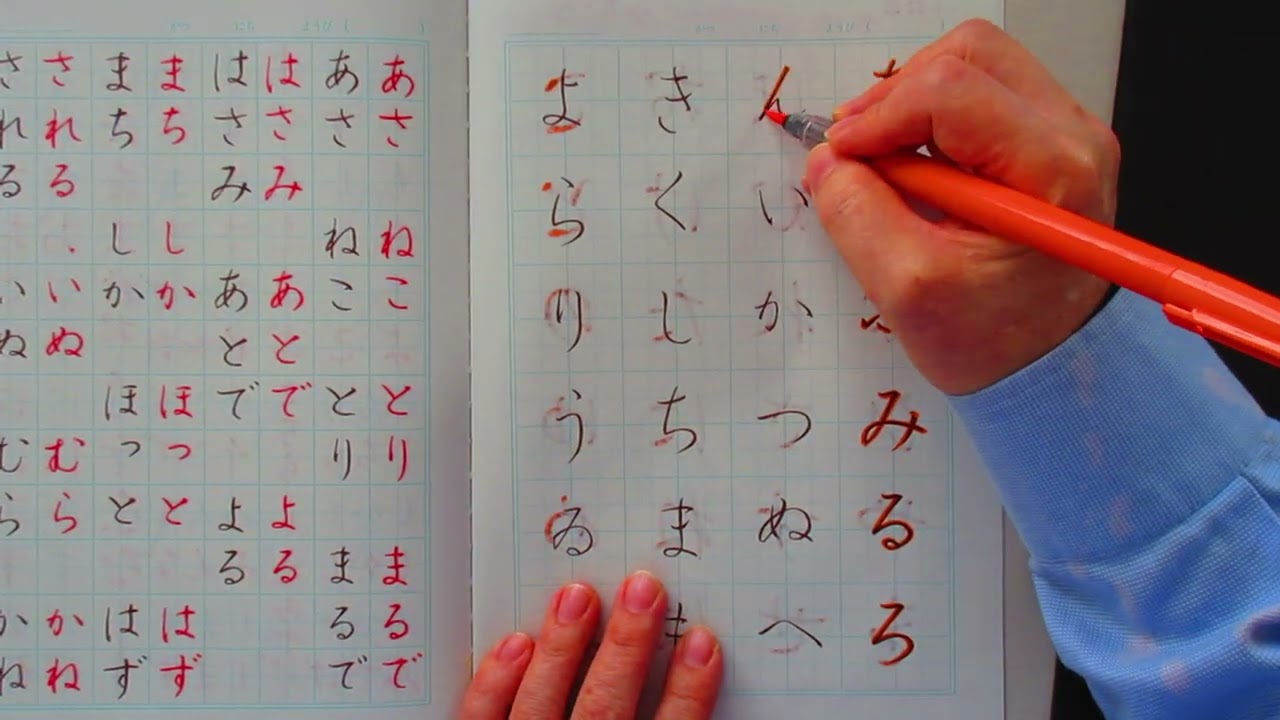 みるろ
んいかつぬへ
きくしちま
よらりうゐ
あさ ねこ とり まるで
あさ ねこ とり まるで
はさみ あとで よる
はさみ あとで よる
まち しか ほっと はず
まち しか ほっと はず
される いぬ むら かね
される いぬ むら かね